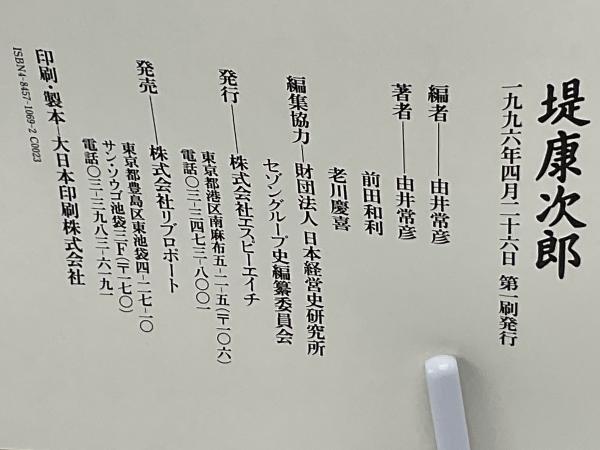 堤康次郎
一九九六年四月二十六日 第一刷発行
編者――由井常彦
著者――由井常彦
前田和利
老川慶喜
編集協力―財団法人 日本経営史研究所
セゾングループ史編纂委員会
発行――株式会社エスピーエイチ
東京都港区南麻布五-二一-五(〒一〇六)
電話〇三-三四七三-八〇〇一
発売――株式会社リブロポート
東京都豊島区東池袋四-二七-一〇
サン・ソウゴ池袋三F(〒一七〇)
電話〇三-三九八三-六一九一
印刷・製本―大日本印刷株式会社
ISBN4-8457-1069-2 C0023